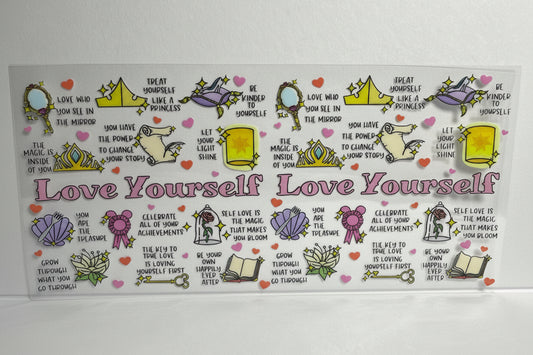 LOVE WHO
YOU SEE IN
THE MIRROR
TREAT
YOURSELF
LIKE A
PRINCESS
BE
KINDER
TO
YOURSELF
THE
MAGIC IS
INSIDE
OF YOU
YOU HAVE
THE POWER
TO CHANGE
YOUR STORY
LET
YOUR
LIGHT
SHINE
Love Yourself
YOU
ARE
THE
TREASURE
CELEBRATE
ALL OF YOUR
ACHIEVEMENTS
SELF LOVE IS
THE MAGIC
THAT MAKES
YOU BLOOM
GROW
THROUGH
WHAT YOU
GO THROUGH
THE KEY TO
TRUE LOVE
IS LOVING
YOURSELF FIRST
BE YOUR
OWN
HAPPILY
EVER
AFTER
LOVE WHO
YOU SEE IN
THE MIRROR
TREAT
YOURSELF
LIKE A
PRINCESS
BE
KINDER
TO
YOURSELF
THE
MAGIC IS
INSIDE
OF YOU
YOU HAVE
THE POWER
TO CHANGE
YOUR STORY
LET
YOUR
LIGHT
SHINE
Love Yourself
YOU
ARE
THE
TREASURE
CELEBRATE
ALL OF YOUR
ACHIEVEMENTS
SELF LOVE IS
THE MAGIC
THAT MAKES
YOU BLOOM
GROW
THROUGH
WHAT YOU
GO THROUGH
THE KEY TO
TRUE LOVE
IS LOVING
YOURSELF FIRST
BE YOUR
OWN
HAPPILY
EVER
AFTER